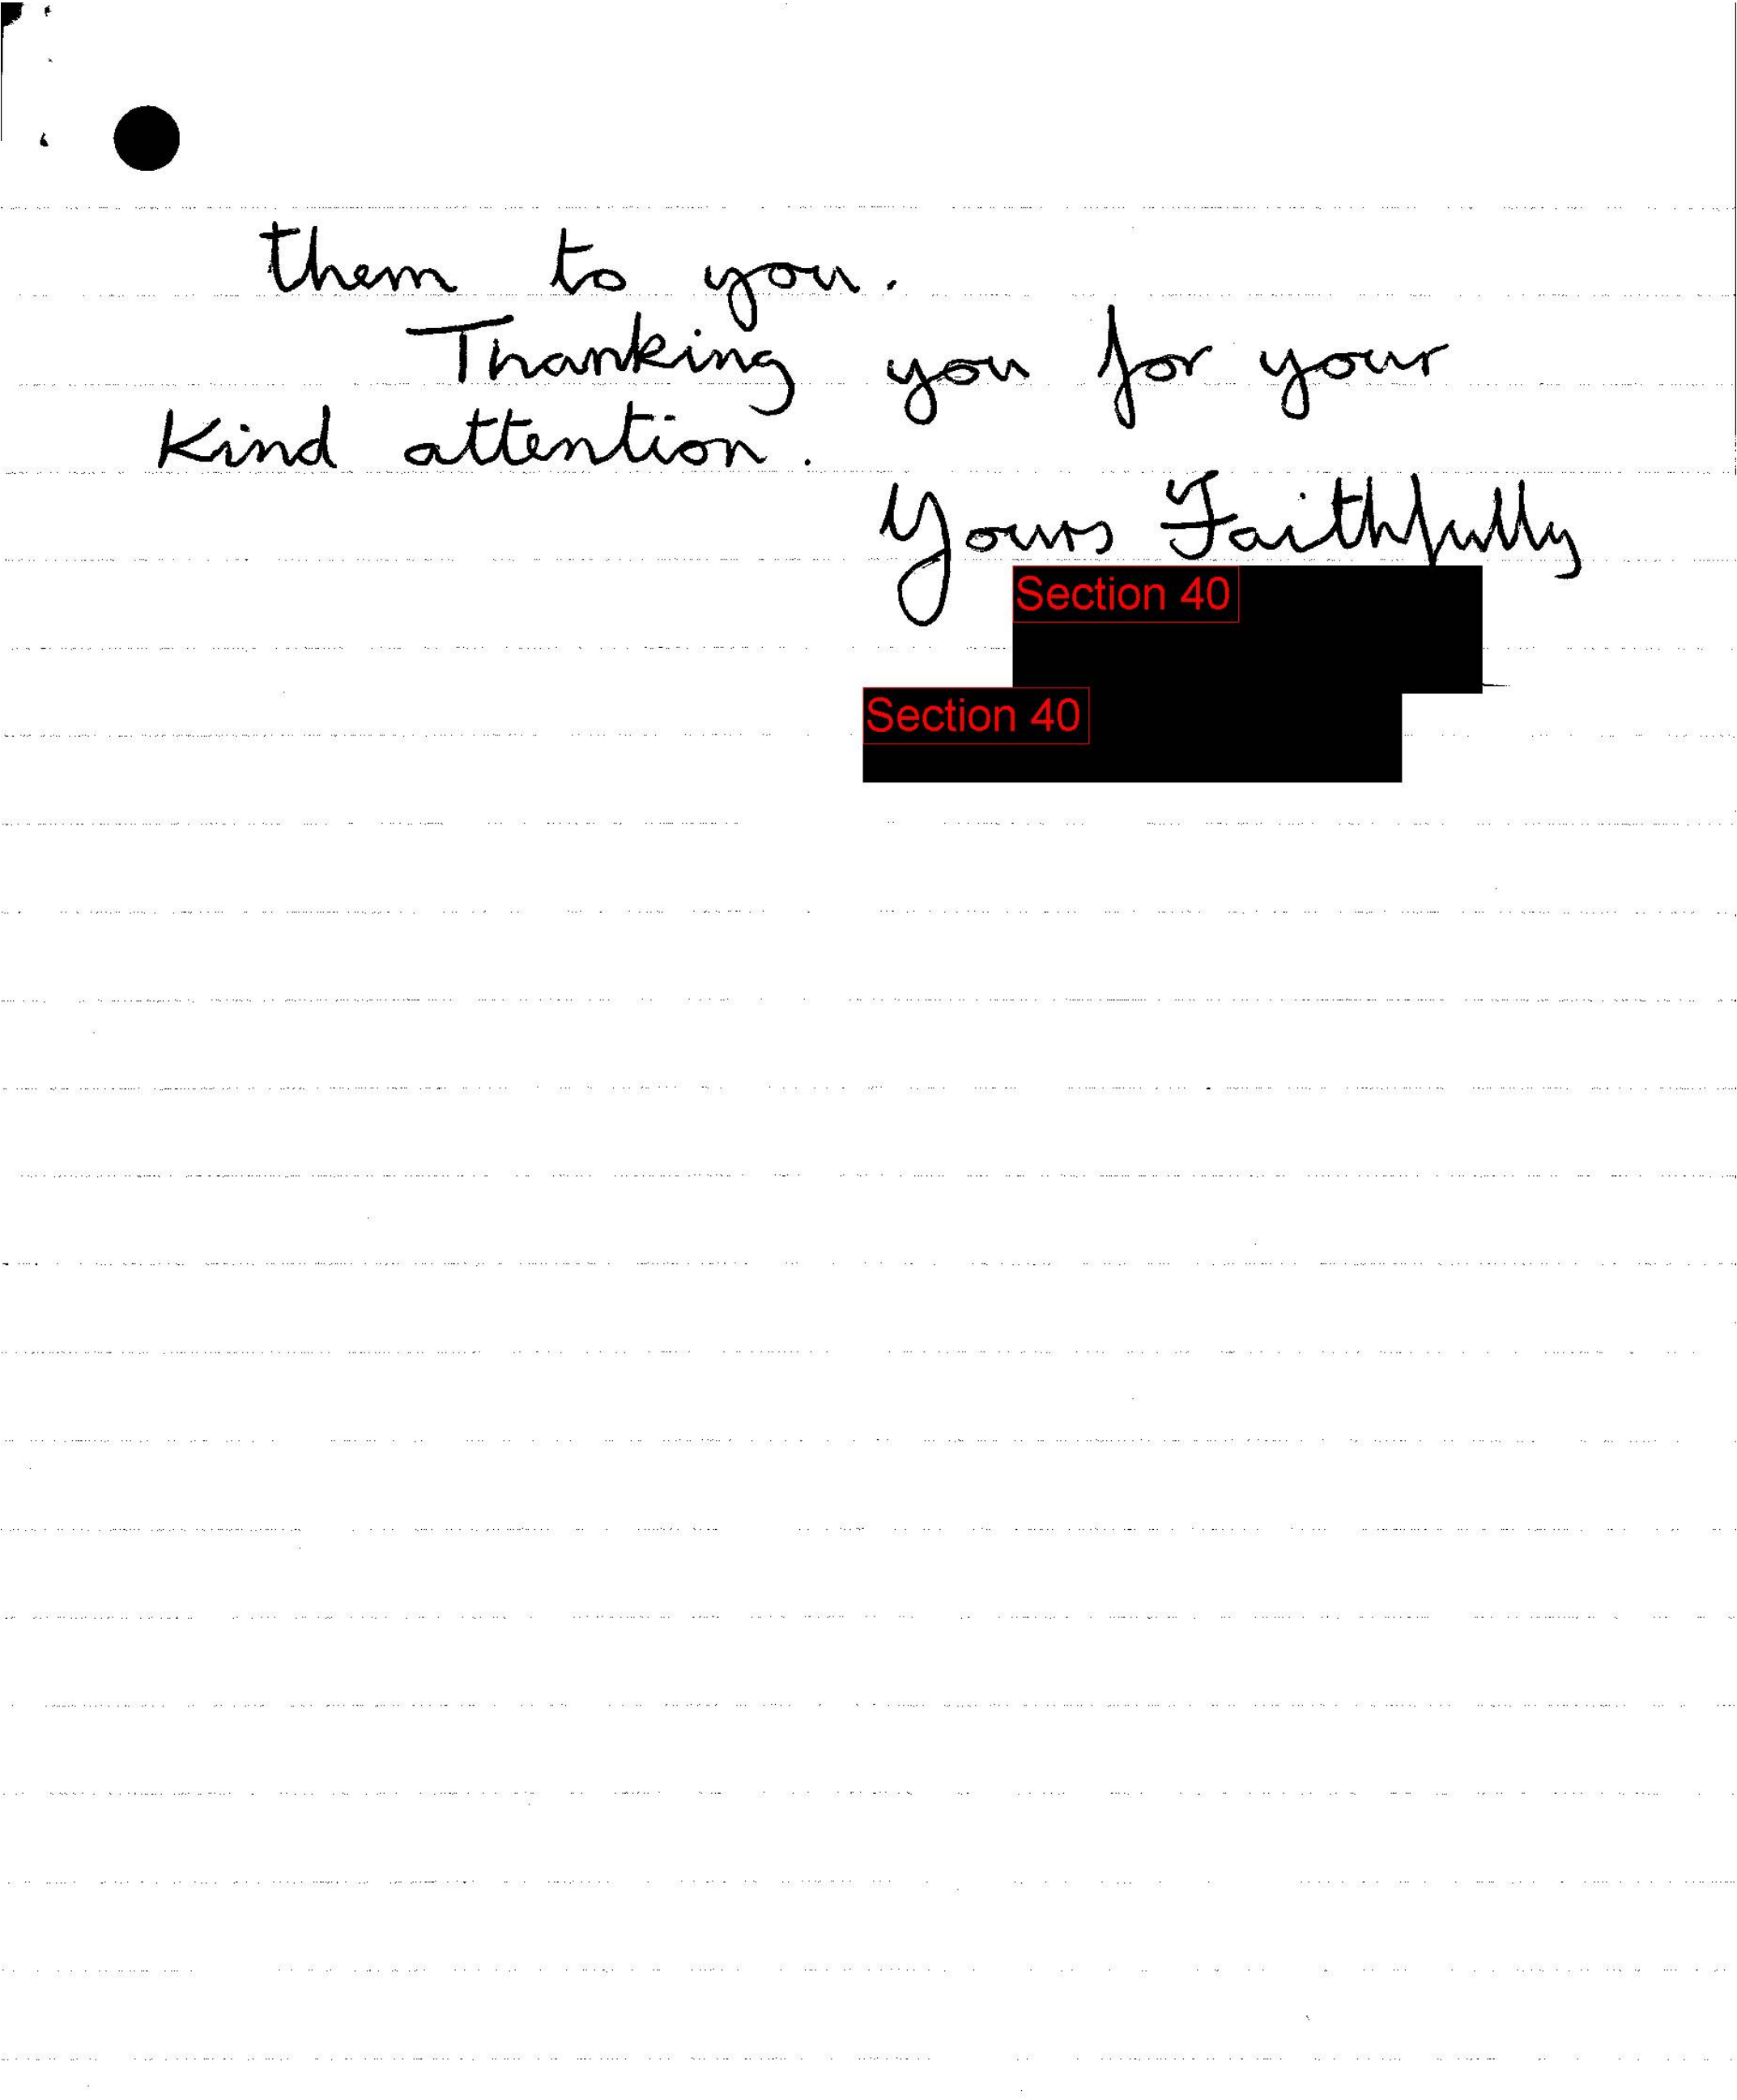 them to you.
Thanking you for your
Kind attention.
Yours Faithfully
Section 40
Section 40